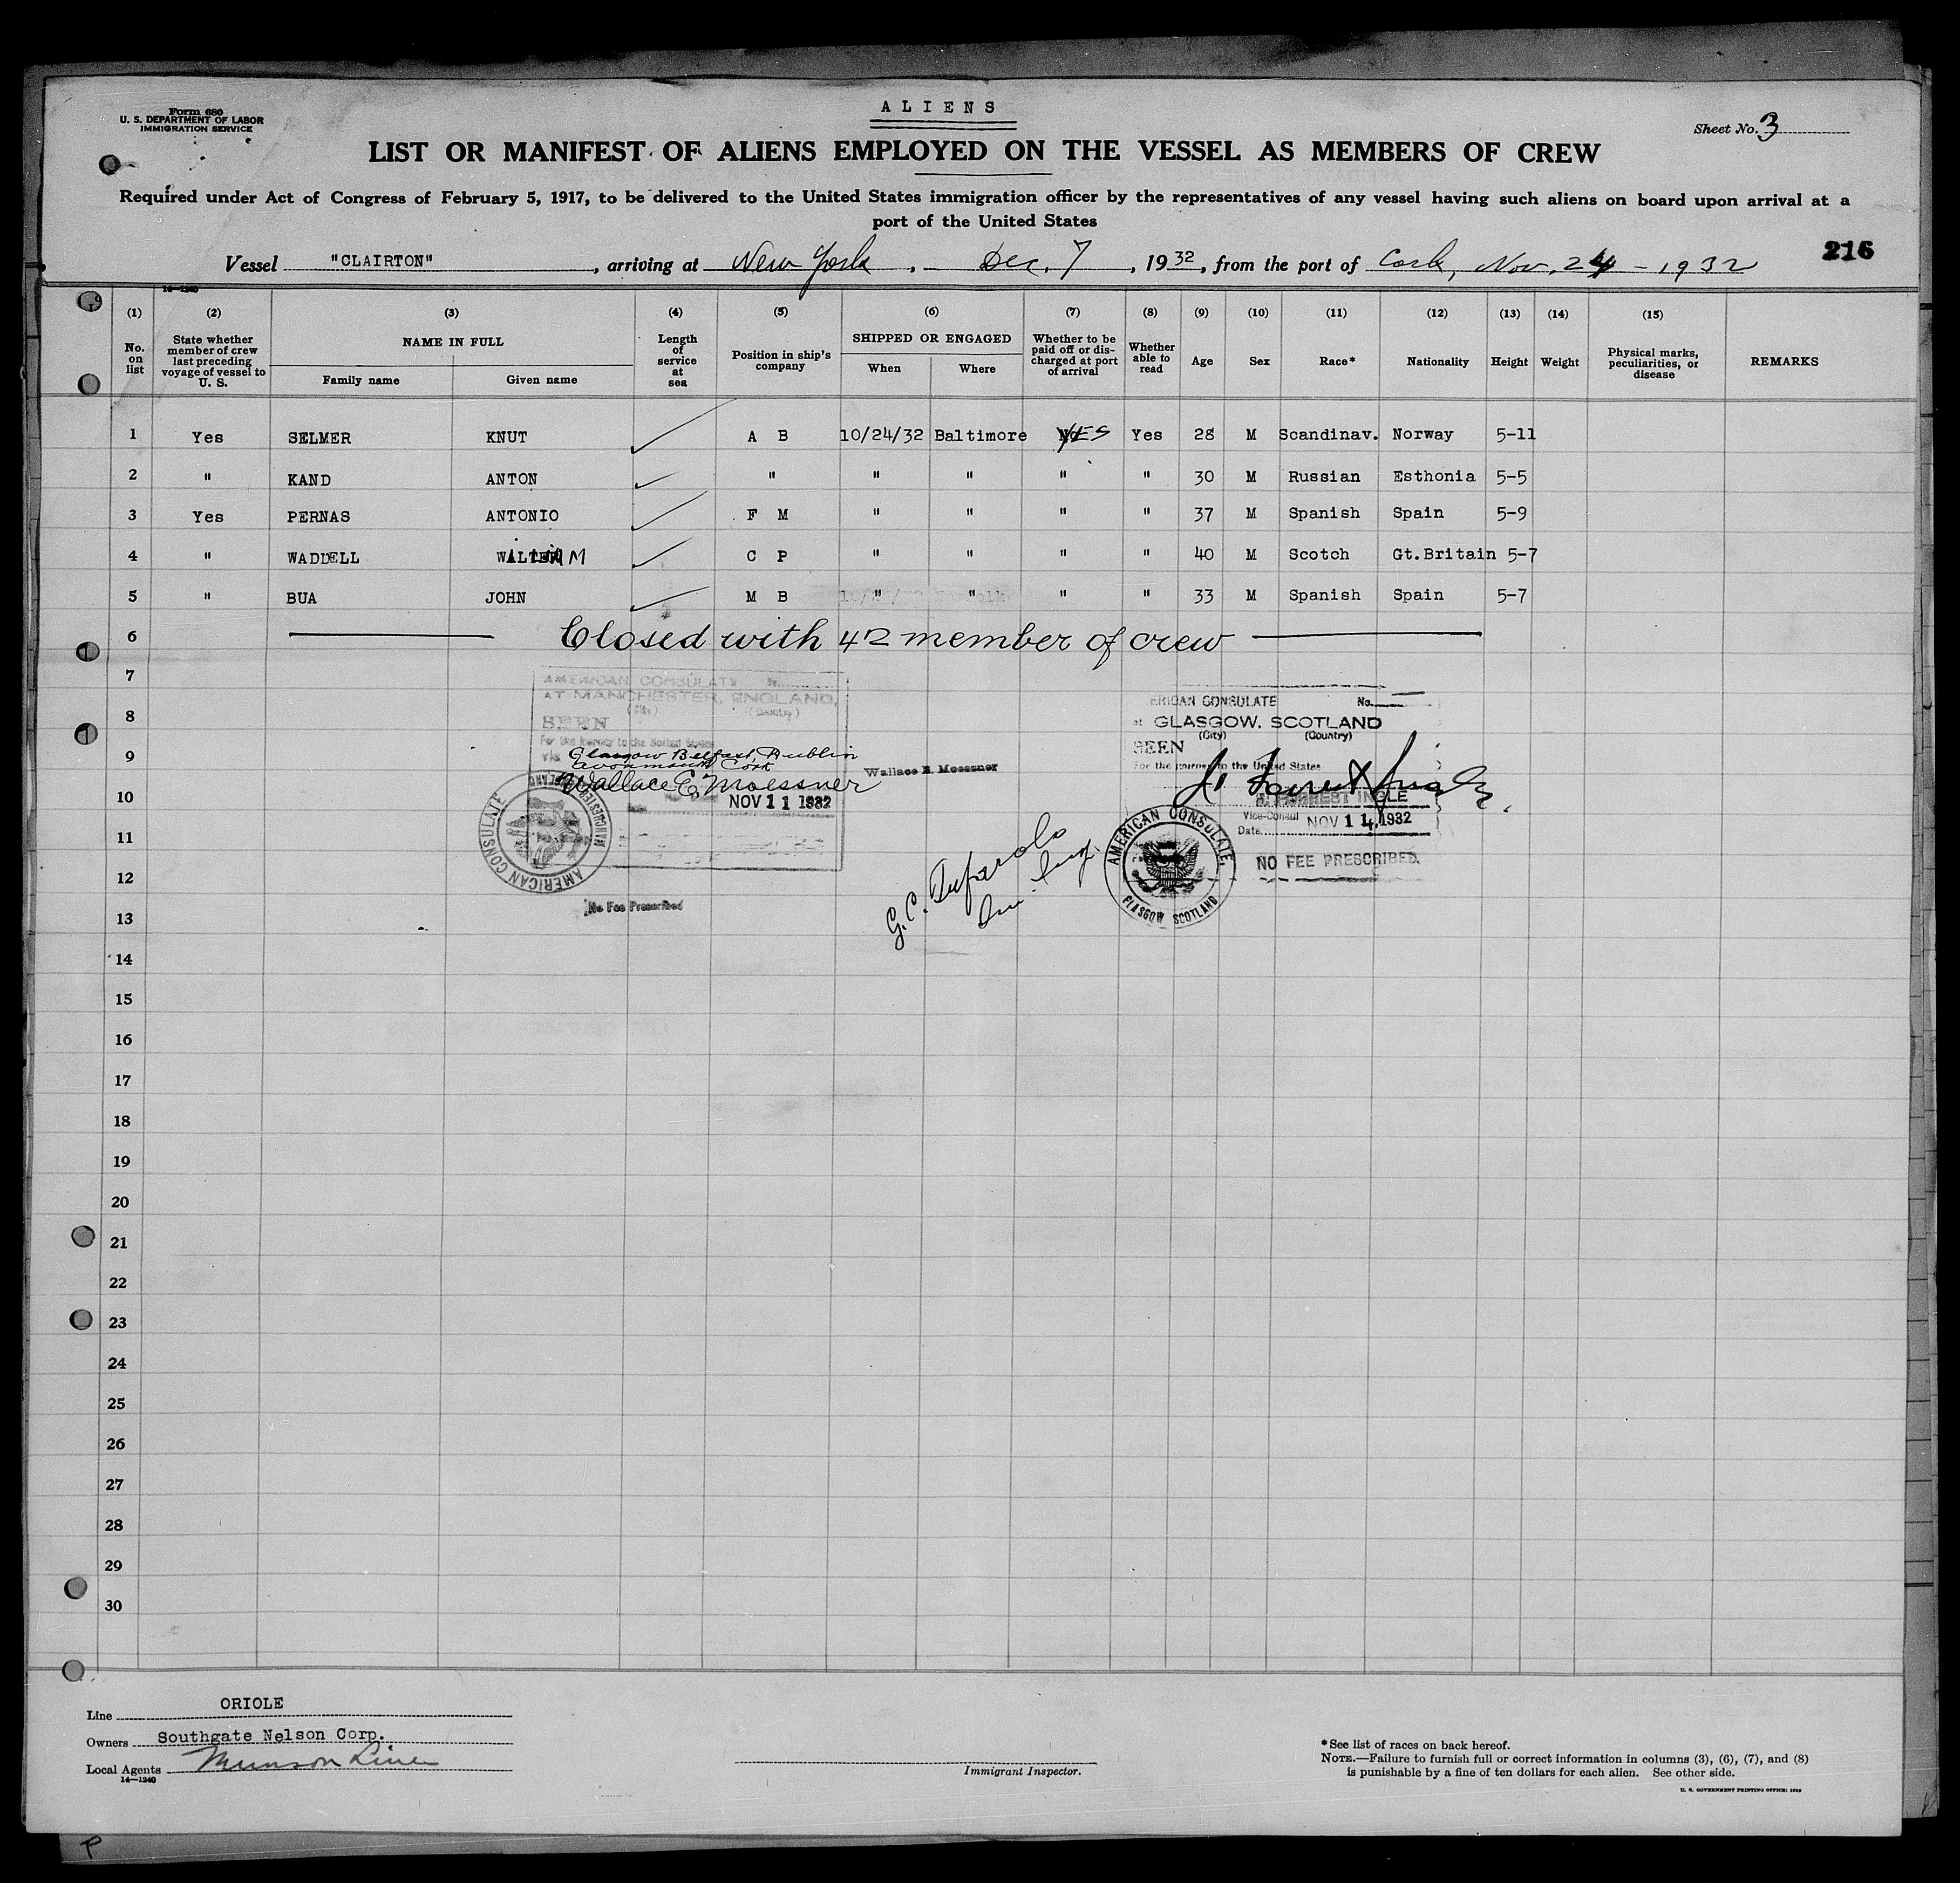 Form 680
U. S. DEPARTMENT OF LABOR
IMMIGRATION SERVICE
ALIENS
Sheet No. 3
LIST OR MANIFEST OF ALIENS EMPLOYED ON THE VESSEL AS MEMBERS OF CREW
Required under Act of Congress of February 5, 1917, to be delivered to the United States immigration officer by the representatives of any vessel having such aliens on board upon arrival at a
port of the United States
Vessel "CLAIRTON", arriving at New York, Dec. 7, 1932, from the port of Cork, Nov. 24 - 1932
216
14—1240
(1) (2) (3) (4) (5) (6) (7) (8) (9) (10) (11) (12) (13) (14) (15)
No. on list
State whether member of crew last preceding voyage of vessel to U. S.
NAME IN FULL
Family name
Given name
Length of service at sea
Position in ship's company
SHIPPED OR ENGAGED
When
Where
Whether to be paid off or discharged at port of arrival
Whether able to read
Age
Sex
Race*
Nationality
Height
Weight
Physical marks, peculiarities, or disease
REMARKS
1 Yes SELMER KNUT A B 10/24/32 Baltimore YES Yes 28 M Scandinav. Norway 5-11
2 " KAND ANTON " " " " " 30 M Russian Esthonia 5-5
3 Yes PERNAS ANTONIO F M " " " " 37 M Spanish Spain 5-9
4 " WADDELL WILLIAM C P " " " " 40 M Scotch Gt.Britain 5-7
5 " BUA JOHN M B " " " " 33 M Spanish Spain 5-7
6 Closed with 42 member of crew
7
8
9
10
11
12
13
14
15
16
17
18
19
20
21
22
23
24
25
26
27
28
29
30
AMERICAN CONSULATE No.
AT MANCHESTER, ENGLAND,
(City) (Country)
SEEN
For the journey to the United States
via Glasgow Belfast, Dublin
Avonmouth Cork
Wallace E. Moessner
NOV 11 1932
AMERICAN CONSULATE MANCHESTER ENGLAND
No Fee Prescribed
Wallace E. Moessner
G. C.
AMERICAN CONSULATE No.
at GLASGOW, SCOTLAND
(City) (Country)
SEEN
For the journey to the United States
A. FORREST INGLE
Vice-Consul
Date NOV 14, 1932
AMERICAN CONSULATE, GLASGOW SCOTLAND
NO FEE PRESCRIBED.
Line ORIOLE
Owners Southgate Nelson Corp.
Local Agents Munson Line
14—1240
Immigrant Inspector.
*See list of races on back hereof.
NOTE.—Failure to furnish full or correct information in columns (3), (6), (7), and (8)
is punishable by a fine of ten dollars for each alien. See other side.